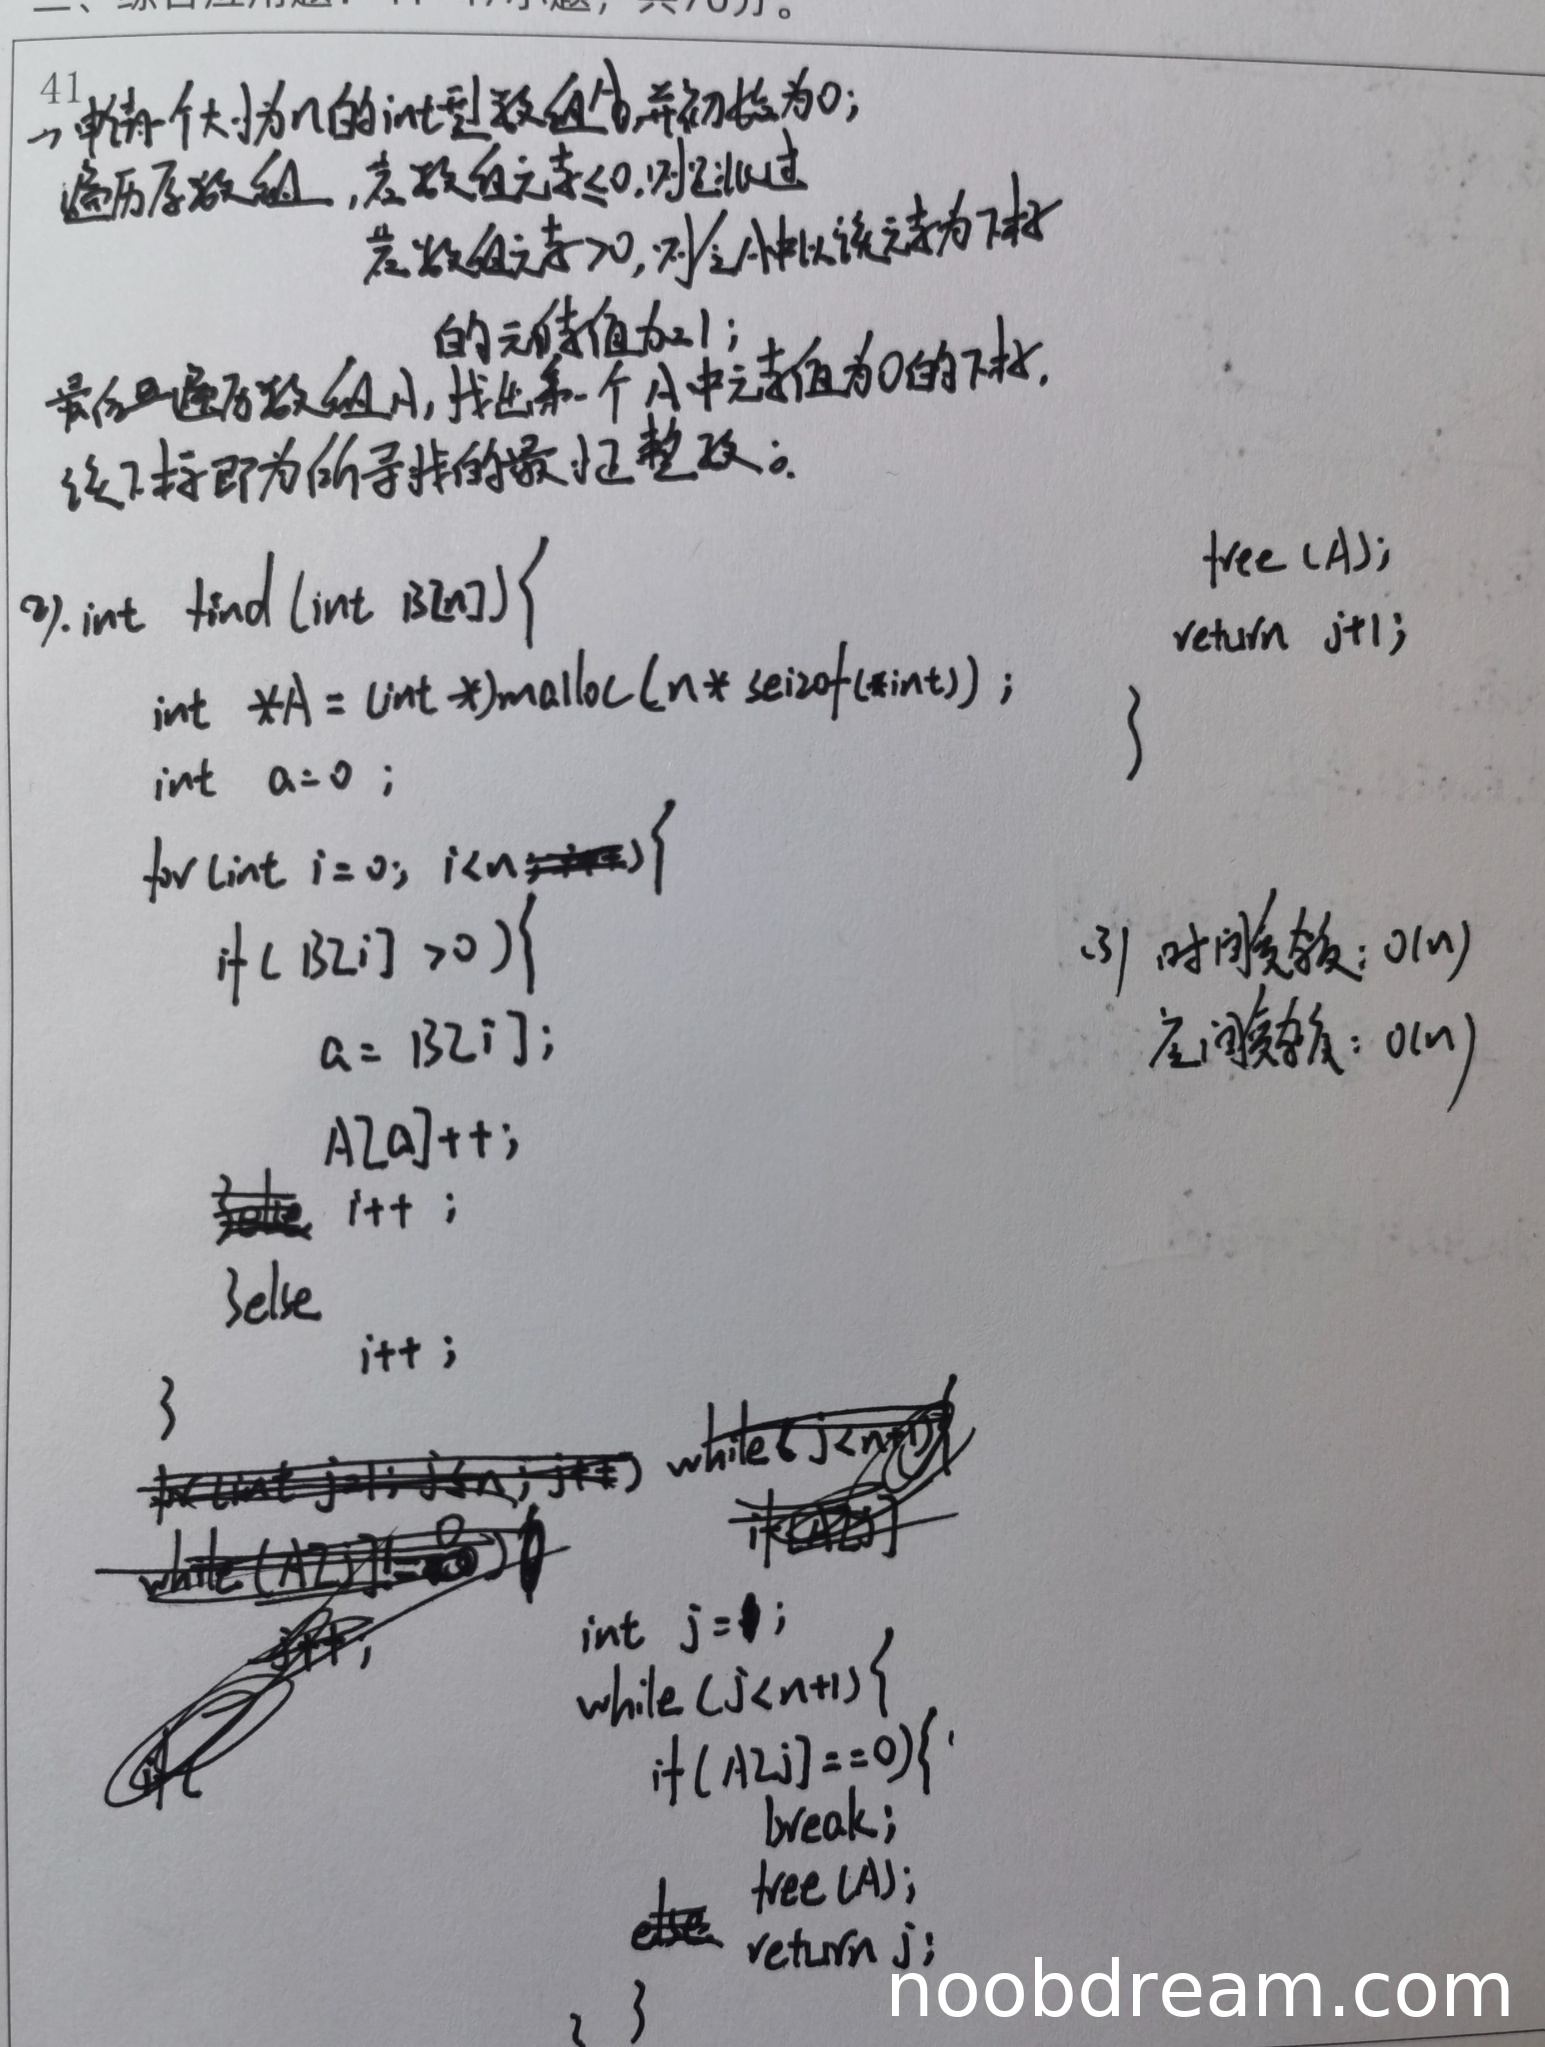 二、综合应用题：41~47小题，共70分。
41
1) 申请一个大小为n的int型数组A,并初始为0;
遍历原数组,若数组元素≤0,则跳过
若数组元素>0,则令A中以该元素为下标
的元素值加1;
最后且遍历数组A,找出第一个A中元素值为0的下标,
该下标即为所寻找的最小正整数;。
2). int find(int B[n]){
int *A = (int *)malloc(n* seizof(*int));
int a=0 ;
for(int i=0; i<n){
if( B[i] >0 ){
a= B[i];
A[a]++;
i++ ;
}else
i++ ;
}
int j=1;
while(j<n+1){
if(A[j]==0){
break;
free(A);
return j;
}
}
free(A);
return j+1;
}
(3) 时间复杂度: O(n)
空间复杂度: O(n)
noobdream.com